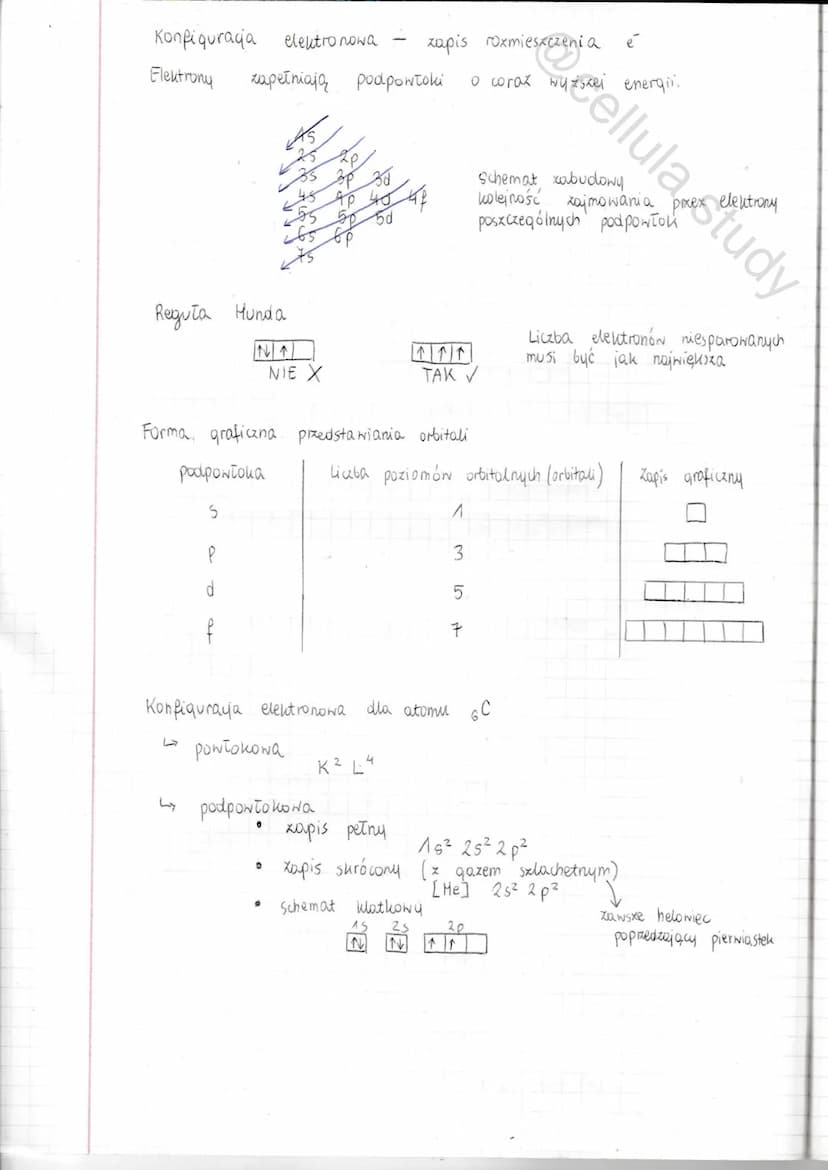 Konfiguracja elektronowa – zapis rozmieszczenia e⁻
Elektrony zapełniają podpowłoki o coraz wyższej energii.
@cellula.study
1s
2s 2p
3s 3p 3d
4s 4p 4d 4f
5s 5p 5d
6s 6p
7s
Schemat zabudowy
kolejność zajmowania przez elektrony
poszczególnych podpowłok
Reguła Hunda
↑↓ ↑
↑ ↑ ↑
NIE X
TAK ✓
Liczba elektronów niesparowanych
musi być jak największa
Forma graficzna przedstawiania orbitali
podpowłoka Liczba poziomów orbitalnych (orbitali) Zapis graficzny
s 1
p 3
d 5
f 7
Konfiguracja elektronowa dla atomu ₆C
↳ powłokowa
K² L⁴
↳ podpowłokowa
• zapis pełny
1s² 2s² 2p²
• zapis skrócony (z gazem szlachetnym)
[He] 2s² 2p²
zawsze helowiec
poprzedzający pierwiastek
• schemat klatkowy
1s 2s 2p
↑↓ ↑↓ ↑ ↑